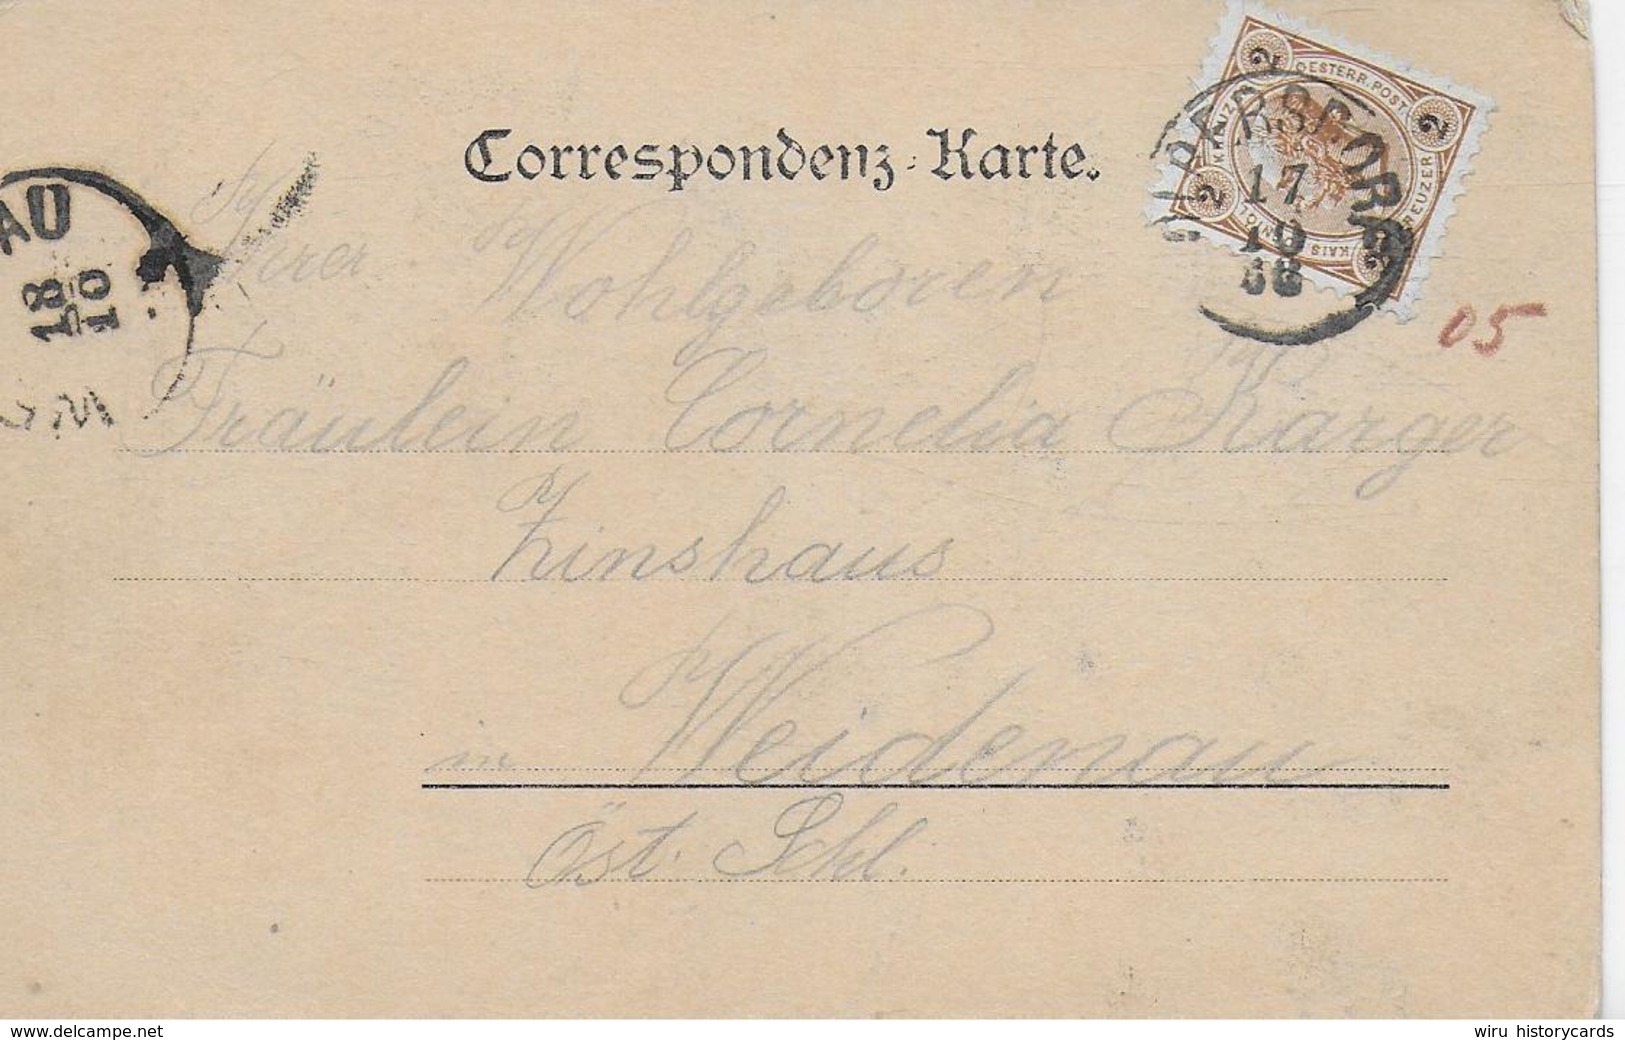 Correspondenz-Karte.
2 2
OESTERR. POST
KREUZER
17
10
AU
18
10
05
Ihrer Wohlgeboren
Fräulein Cornelia Karger
Zinshaus
in Weidenau
Öst. Schl.
www.delcampe.net
wiru historycards